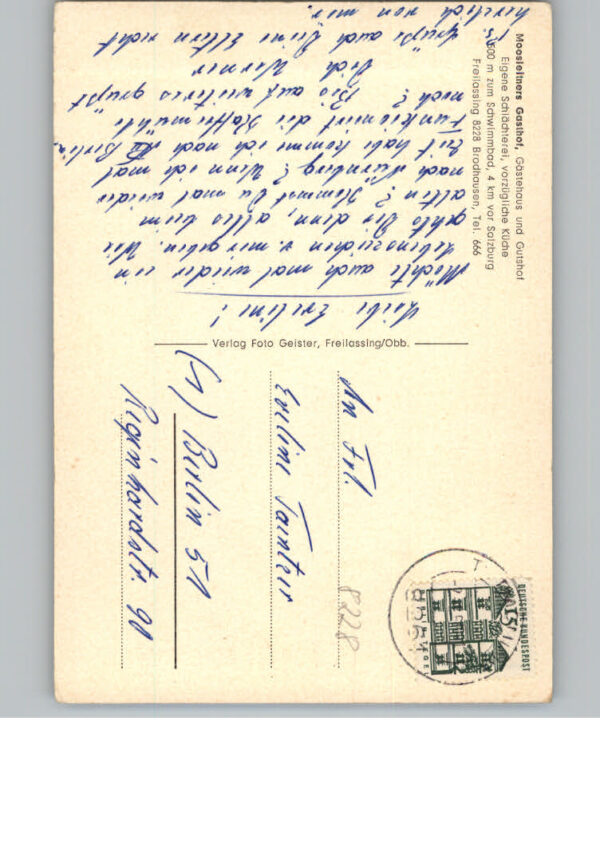 Moosleitners Gasthof, Gästehaus und Gutshof
Eigene Schlächterei, vorzügliche Küche
500 m zum Schwimmbad, 4 km vor Salzburg
Freilassing 8228 Brodhausen, Tel. 666
Liebe Eveline!
Möchte auch mal wieder ein
Lebenszeichen v. mir geben. Wie
gehts Dir denn, alles beim
alten? Kommst Du mal wieder
nach Nürnberg? Wenn ich mal
Zeit hab komme ich nach Berlin.
Funktioniert die Kaffeemühle
noch? Bis auf weiteres grüßt
Dich Werner
Grüße auch Deine Eltern recht
herzlich von mir.
Verlag Foto Geister, Freilassing/Obb.
An Frl.
Eveline
(1) Berlin 51
Reginhardstr. 90
8228
DEUTSCHE BUNDESPOST